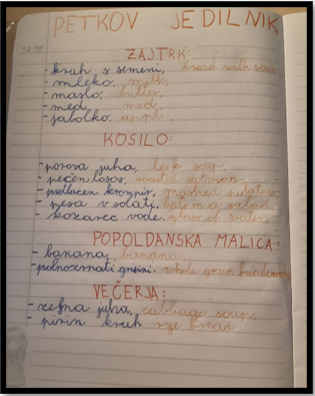 PETKOV JEDILNIK
ZAJTRK:
- kruh s semeni, bread with
- mleko, milk,
- maslo, butter,
- med, med,
- jabolko, appl
KOSILO:
- porova juha, leek soup,
- pečen losos, salmon,
- pretlačen krompir, mashed
- pesa v solati, salad,
- kozarec vode. glass of water.
POPOLDANSKA MALICA:
- banana, banana
- polnozrnati grisini. whole grain
VEČERJA:
- zeljna juha, cabbage soup,
- pirin kruh rye bread